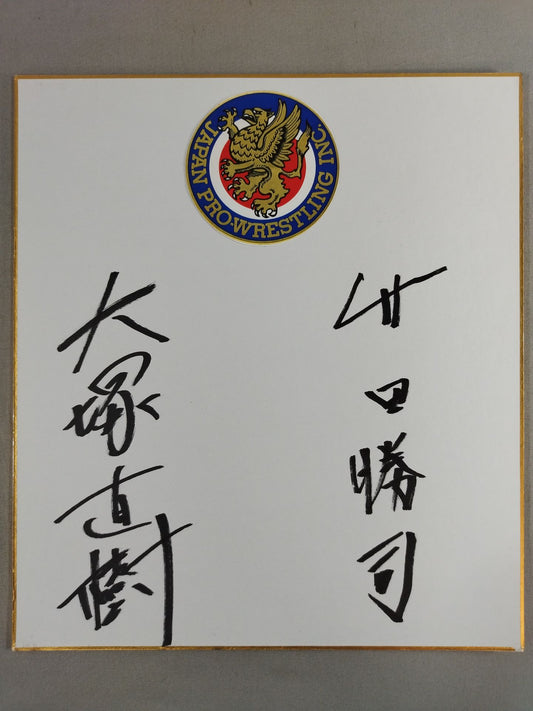 JAPAN PRO-WRESTLING INC.
竹田勝司
大塚直樹